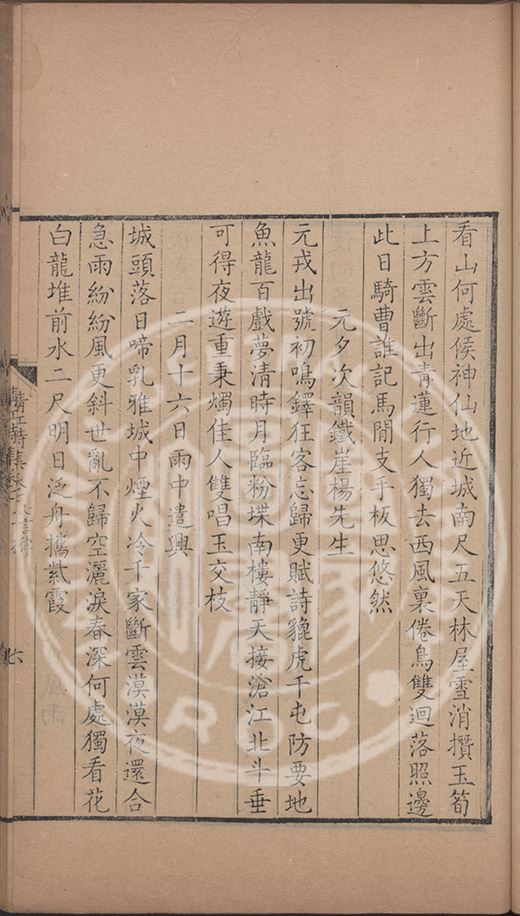 看山何處候神仙地近城南尺五天林屋雪消攢玉筍
上方雲斷出青蓮行人獨去西風裏倦鳥雙迴落照邊
此日騎曹誰記馬閒支手板思悠然
元夕次韻鐵崖楊先生
元戎出號初鳴鐸狂客忘歸更賦詩貔虎千屯防要地
魚龍百戲夢清時月臨粉堞南樓靜天接滄江北斗垂
可得夜遊重秉燭佳人雙唱玉交枝
二月十六日雨中遣興
城頭落日啼乳雅城中煙火冷千家斷雲漠漠夜還合
急雨紛紛風更斜世亂不歸空灑淚春深何處獨看花
白龍堆前水二尺明日泛舟攜紫霞